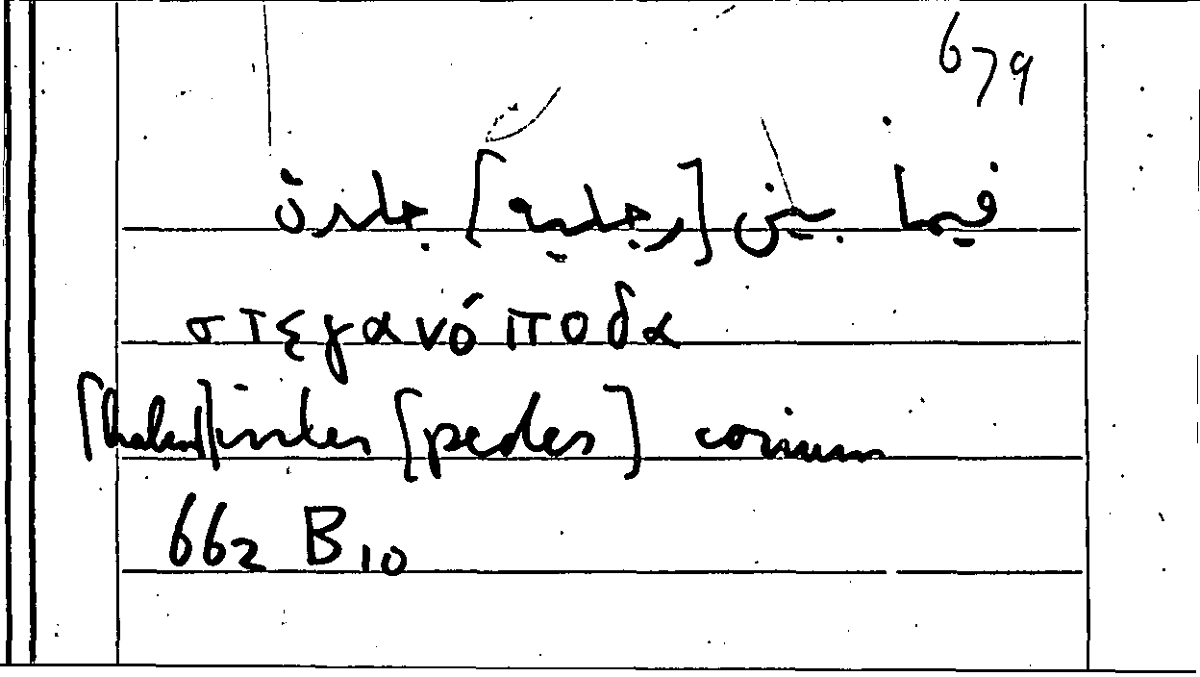 679
فيما بين [رجليه] جلدة
στεγανόποδα
[habens] inter [pedes] corium
662 B10